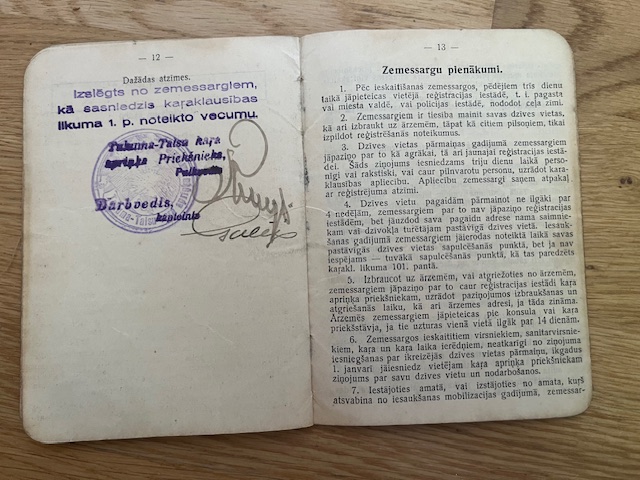 — 12 —
Dažādas atzīmes.
Izslēgts no zemessargiem,
kā sasniedzis karaklausības
likuma 1. p. noteikto vecumu.
Tukuma-Talsu kara
apriņķa Priekšnieks,
Pulkvedis
Darbvedis,
kapteinis
— 13 —
Zemessargu pienākumi.
1. Pēc ieskaitīšanas zemessargos, pēdējiem trīs dienu
laikā jāpieteicas vietējā reģistrācijas iestādē, t. i. pagasta
vai miesta valdē, vai policijas iestādē, nododot ceļa zīmi.
2. Zemessargiem ir tiesība mainīt savas dzīves vietas,
kā arī izbraukt uz ārzemēm, tāpat kā citiem pilsoņiem, tikai
izpildot reģistrēšanās noteikumus.
3. Dzīves vietas pārmaiņas gadījumā zemessargiem
jāpaziņo par to kā agrākai, tā arī jaunajai reģistrācijas iestā-
dei. Šāds ziņojums iesniedzams triju dienu laikā perso-
nīgi vai rakstiski, vai caur pilnvarotu personu, uzrādot kara-
klausības apliecību. Apliecību zemessargi saņem atpakaļ
ar reģistrējuma atzīmi.
4. Dzīves vietu pagaidām pārmainot ne ilgāki par
4 nedēļām, zemessargiem par to nav jāpaziņo reģistrācijas
iestādēm, bet jāuzdod sava pagaidu adrese nama saimnie-
kam vai dzīvokļa turētājam pastāvīgā dzīves vietā. Iesauk-
šanas gadījumā zemessargiem jāierodas noteiktā laikā savas
pastāvīgās dzīves vietas sapulcēšanās punktā, bet ja nav
iespējams — tuvākā sapulcēšanās punktā, kā tas paredzēts
karakl. likuma 101. pantā.
5. Izbraucot uz ārzemēm, vai atgriežoties no ārzemēm,
zemessargiem jāpaziņo par to caur reģistrācijas iestādi kara
apriņķa priekšniekam, uzrādot paziņojumos izbraukšanas un
atgriešanās laiku, kā arī ārzemes adresi, ja tāda zināma.
Ārzemēs zemessargiem jāpieteicas pie konsula vai kara
priekšstāvja, ja tie uzturas vienā vietā ilgāk par 14 dienām.
6. Zemessargos ieskaitītiem virsniekiem, sanitārvirsnie-
kiem, kara un kara laika ierēdņiem, neatkarīgi no ziņojuma
iesniegšanas par ikreizējās dzīves vietas pārmaiņu, ikgadus
1. janvārī jāiesniedz vietējam kara apriņķa priekšniekam
ziņojums par savu dzīves vietu un nodarbošanos.
7. Iestājoties amatā, vai izstājoties no amata, kurš
atsvabina no iesaukšanas mobilizācijas gadījumā, zemessar-